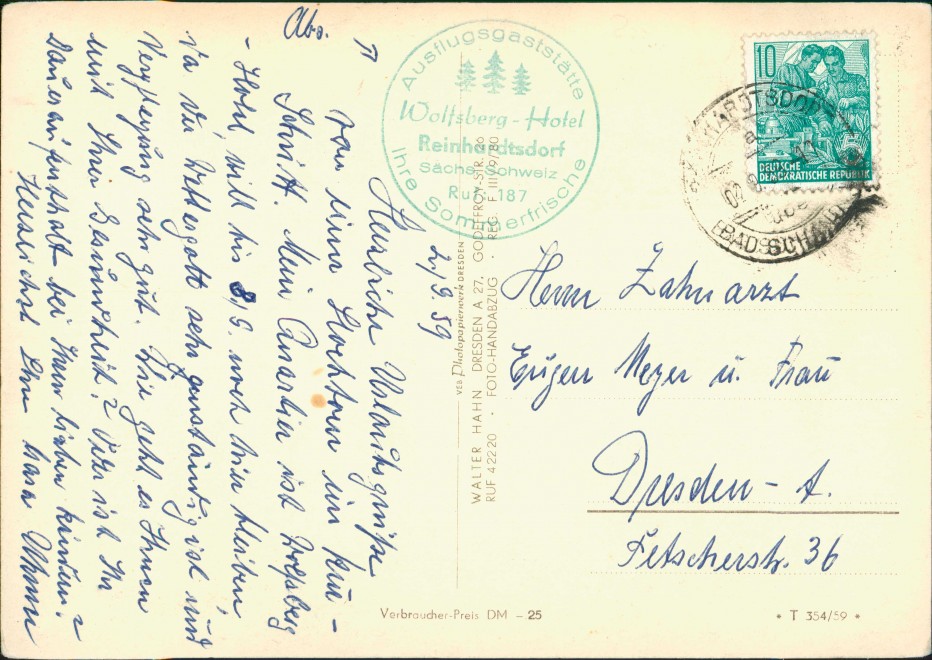 Abs.
2/9. 59
Herzliche Urlaubsgrüße
von einer Hochtour im
Schritt. Mein Quartier ist Wolfsberg
- Hotel, will bis 8.9. noch hier bleiben
da der Wettergott sehr anständig ist und
Verpflegung sehr gut. Wie geht es Ihnen
mit Ihrer Gesundheit? Oder ist Ihr
Daueraufenthalt bei Ihren lieben Kindern?
Herzlichst Ihr
Ausflugsgaststätte
Wolfsberg-Hotel
Reinhardtsdorf
Sächs. Schweiz
Ruf 187
Ihre Sommerfrische
VEB Photopapierwerk DRESDEN
WALTER HAHN DRESDEN A 27, GODEFFROY-STR. 26
RUF 42220 · FOTO-HANDABZUG · REG. F III/9/80
10
DEUTSCHE
DEMOKRATISCHE REPUBLIK
(BAD SCHANDAU)
Herrn Zahnarzt
Eugen Meyer u. Frau
Dresden - A.
Fetscherstr. 36
Verbraucher-Preis DM - 25
* T 354/59 *